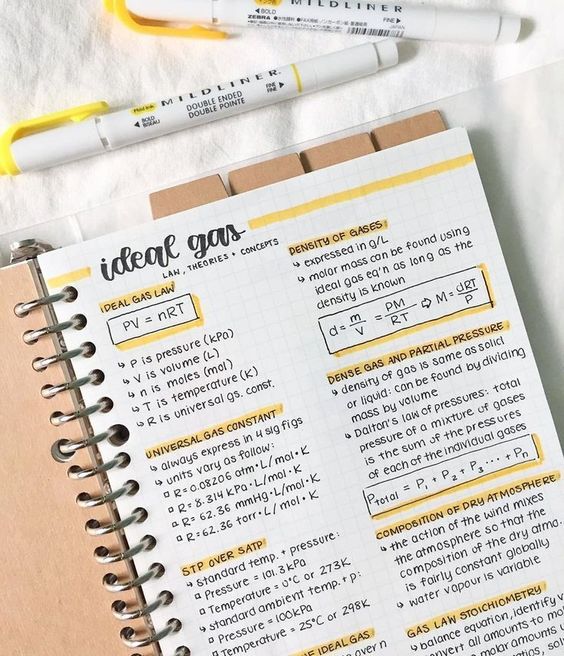 BOLD
FINE
ZEBRA
MILDLINER
Mild Ink
MILDLINER.
DOUBLE ENDED
DOUBLE POINTE
BOLD
BISEAU
FINE
FINE
ideal gas
LAW, THEORIES + CONCEPTS
IDEAL GAS LAW
PV = nRT
↳ P is pressure (kPa)
↳ V is volume (L)
↳ n is moles (mol)
↳ T is temperature (K)
↳ R is universal gas. const.
UNIVERSAL GAS CONSTANT
↳ always express in 4 sig figs
↳ units vary as follow:
▫ R= 0.08206 atm·L/mol·K
▫ R= 8.314 kPa·L/mol·K
▫ R= 62.36 mmHg·L/mol·K
▫ R= 62.36 torr·L/mol·K
STP OVER SATP
↳ standard temp. + pressure:
▫ Pressure = 101.3 kPa
▫ Temperature = 0°C or 273K
↳ standard ambient temp. + p:
▫ Pressure = 100kPa
▫ Temperature = 25°C or 298K
THE IDEAL GAS
DENSITY OF GASES
↳ expressed in g/L
↳ molar mass can be found using
ideal gas eq'n as long as the
density is known
d = m/V = PM/RT ⇨ M = dRT/P
DENSE GAS AND PARTIAL PRESSURE
↳ density of gas is same as solid
or liquid: can be found by dividing
mass by volume
↳ Dalton's law of pressures: total
pressure of a mixture of gases
is the sum of the pressures
of each of the individual gases
Ptotal = P1 + P2 + P3 ... + Pn
COMPOSITION OF DRY ATMOSPHERE
↳ the action of the wind mixes
the atmosphere so that the
composition of the dry atmo.
is fairly constant globally
↳ water vapour is variable
GAS LAW STOICHIOMETRY
↳ balance equation, identify
convert all amounts to